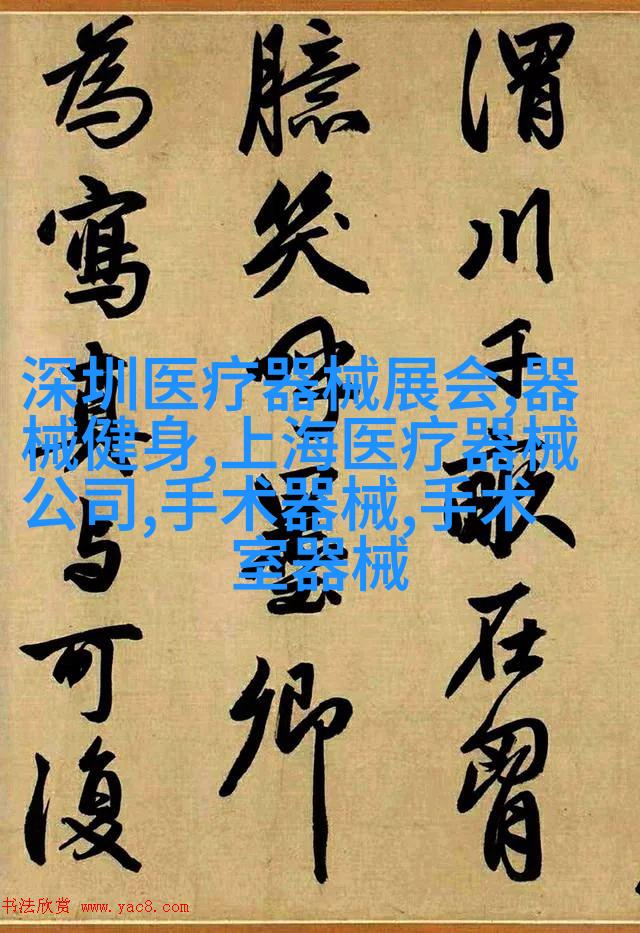 渭川千畝在胷
臆笑呼墨卿
為寫真与可復
深圳医疗器械展会,器
械健身,上海医疗器械
公司,手术器械,手术
室器械
书法欣赏 www.yac8.com